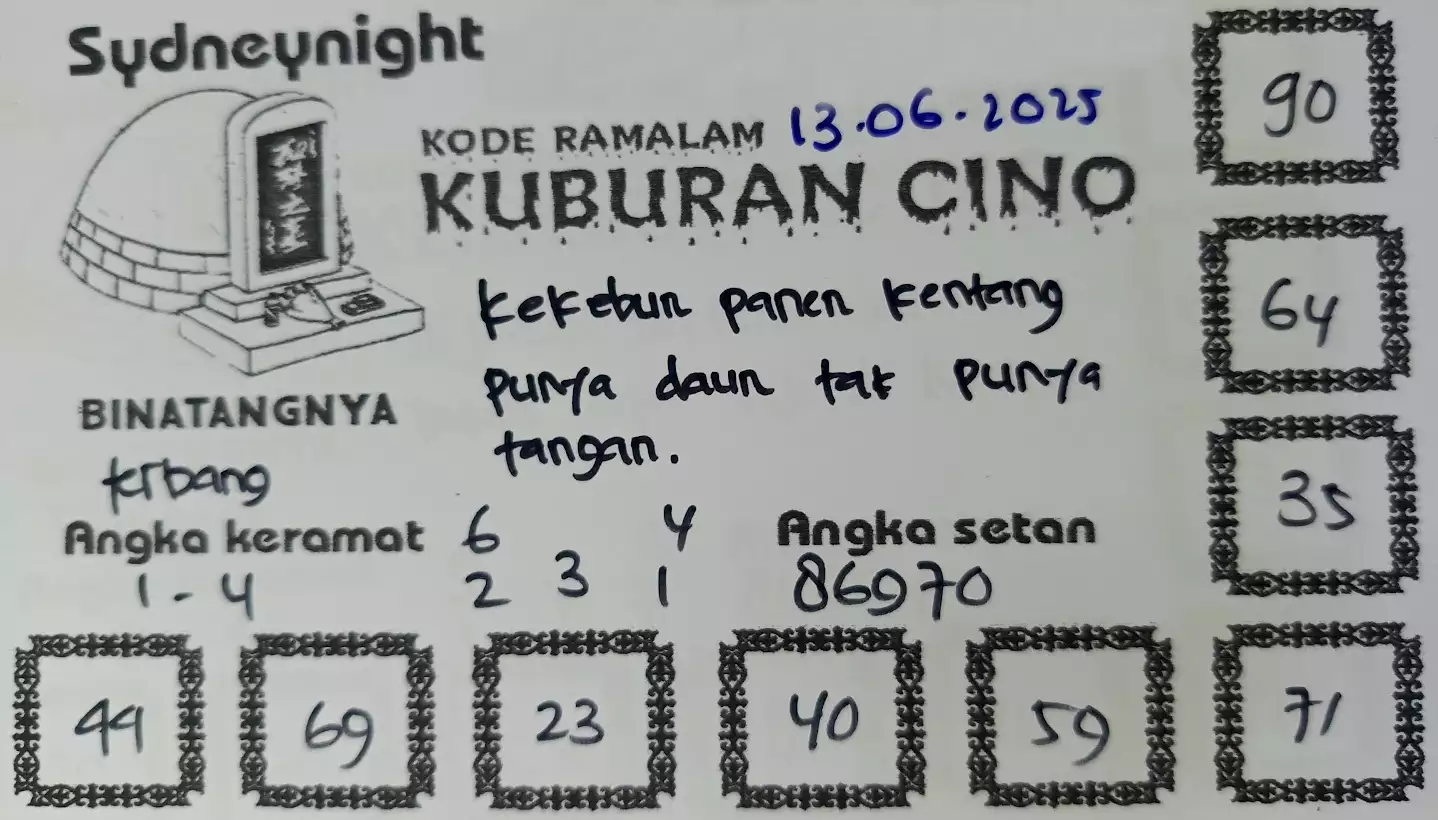 Sydneynight
KODE RAMALAM 13.06.2025
KUBURAN CINO
kekebun panen kentang
punya daun tak punya
tangan.
BINATANGNYA
Angka keramat
1 - 4
6 4
2 3 1
Angka setan
86970
90
64
35
71
44
69
23
40
59